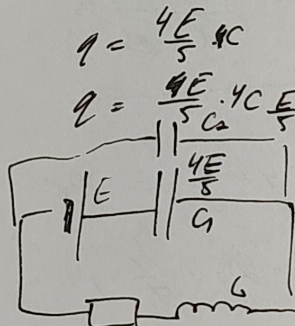 q = 4E/5 · C
q = 4E/5 · 4C
C₂ E/5
E 4E/5
C₁
L